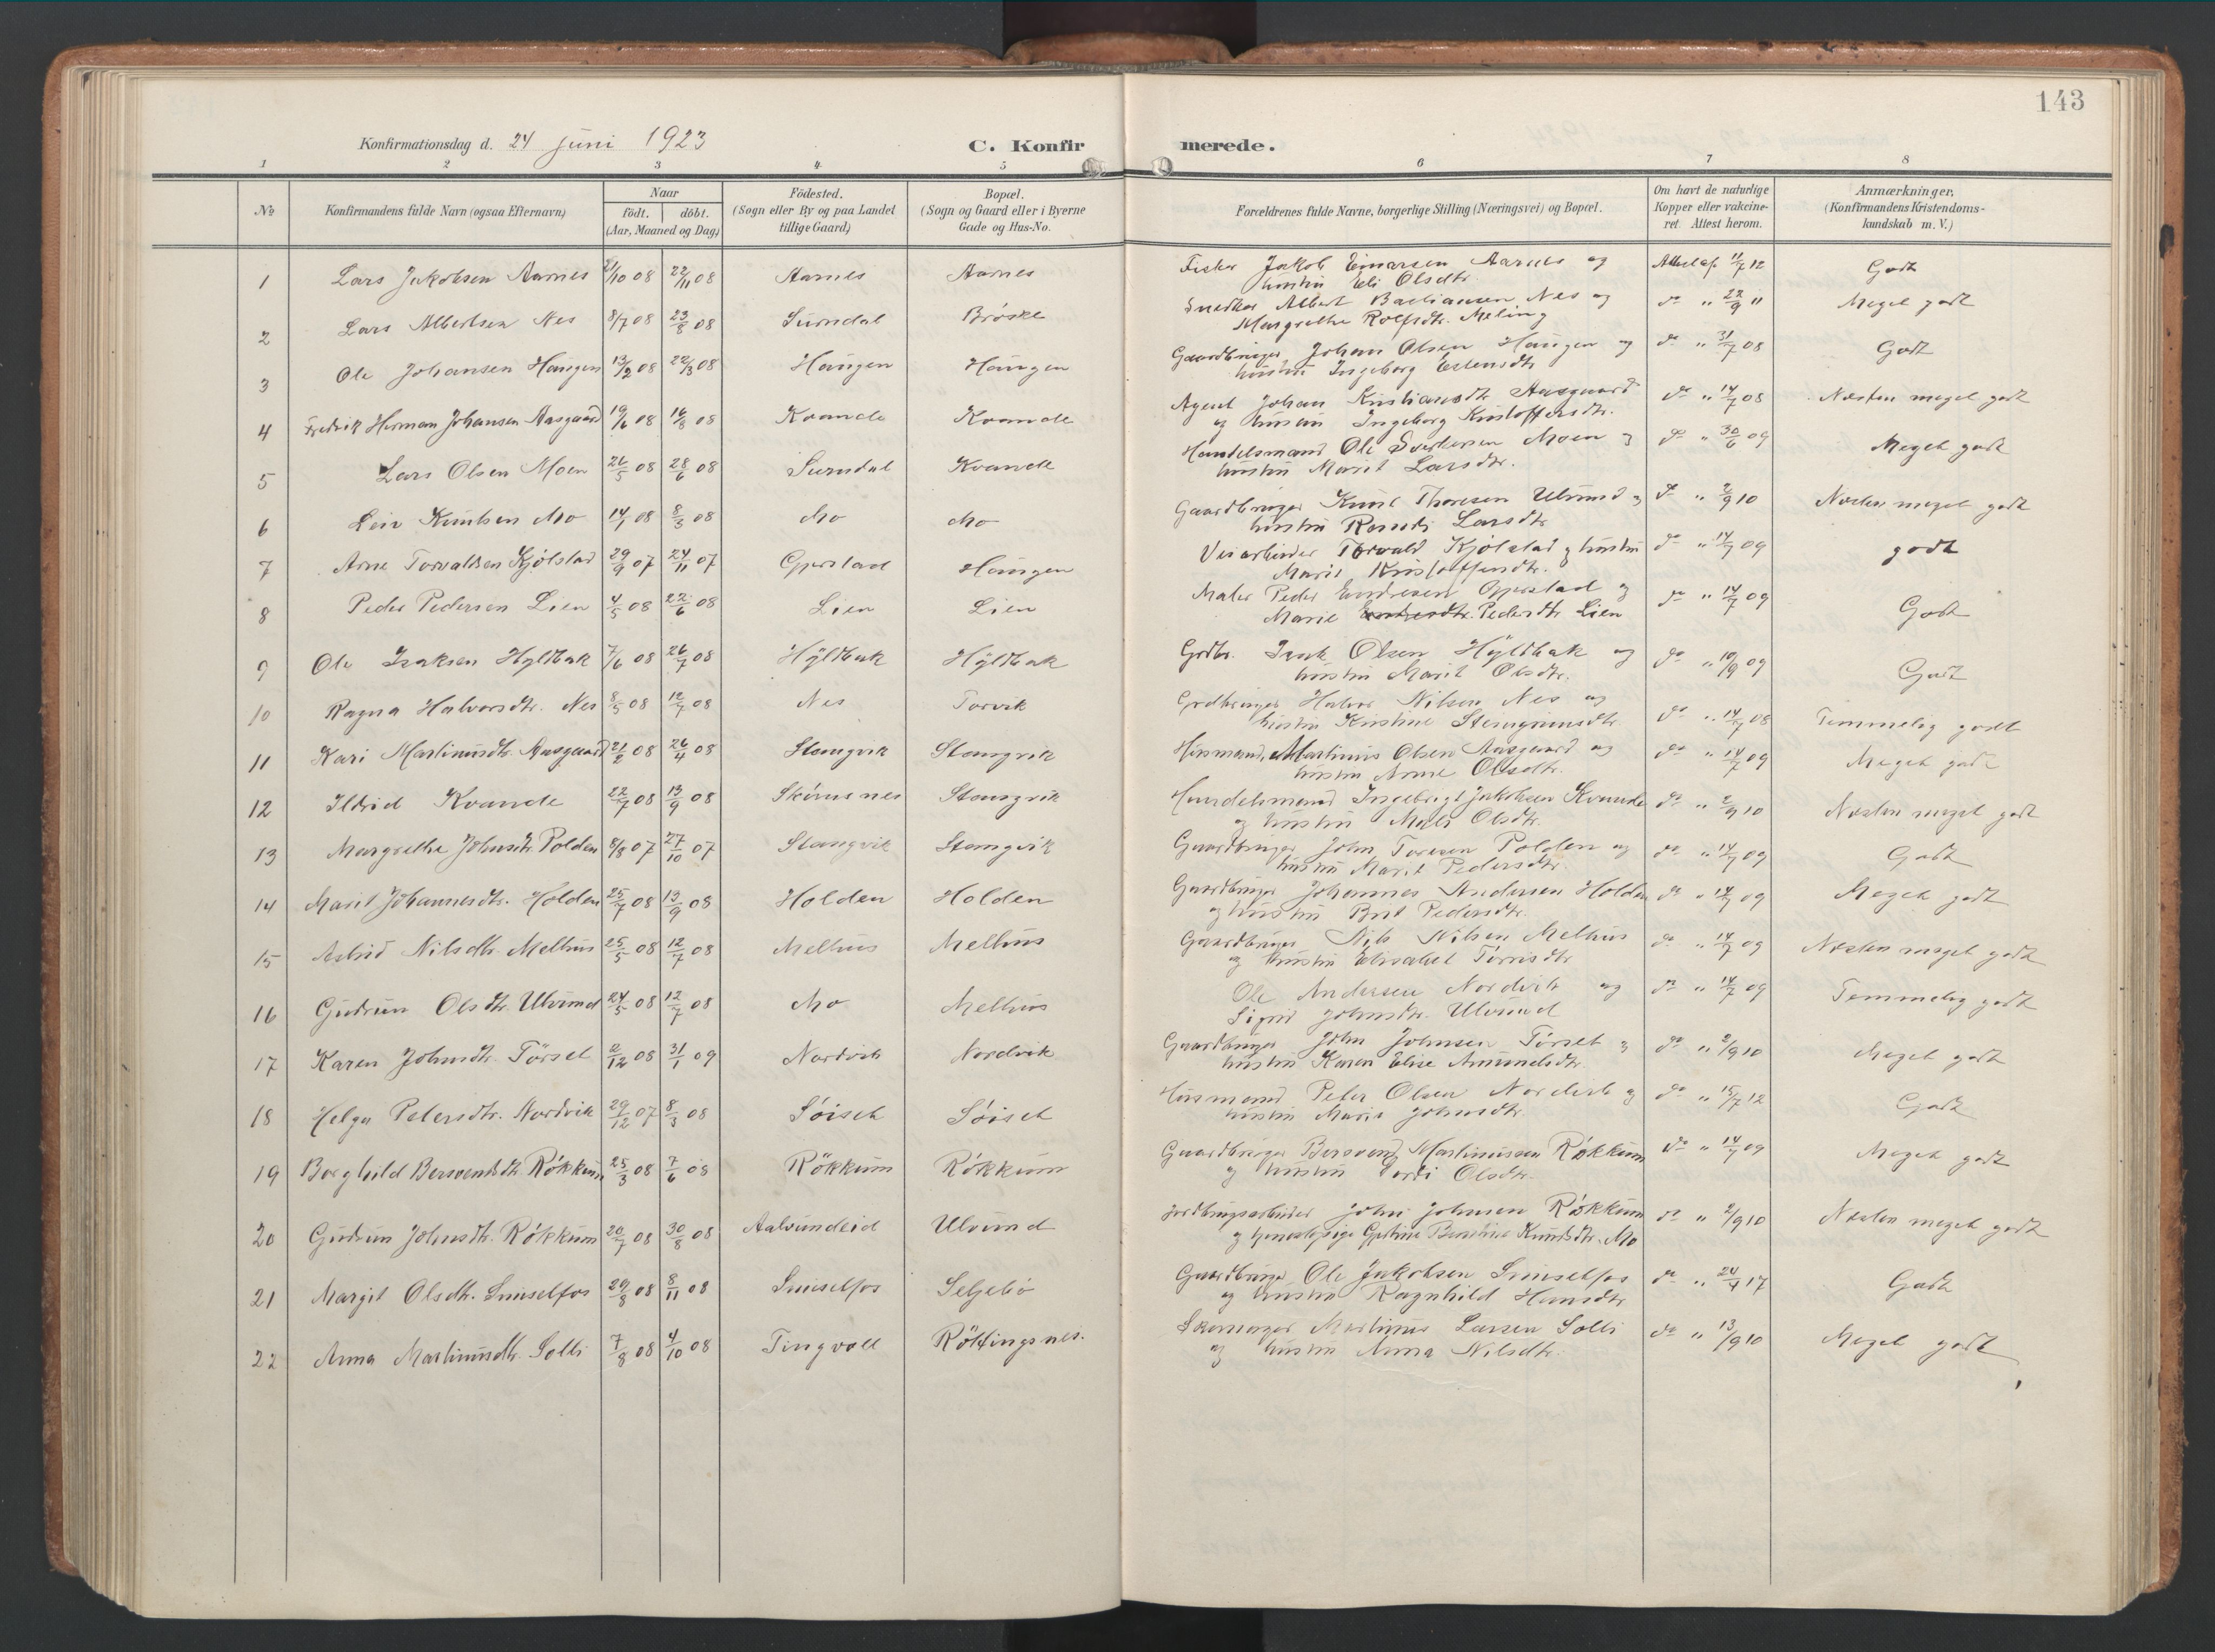 143
Konfirmationsdag d. 24 juni 1923
C. Konfirmerede.
1 2 3 4 5 6 7 8
No
Konfirmandens fulde Navn (ogsaa Efternavn)
Naar
födt. döbt.
(Aar, Maaned og Dag)
Födested.
(Sogn eller By og paa Landet
tillige Gaard)
Bopæl.
(Sogn og Gaard eller i Byerne
Gade og Hus-No.
Forældrenes fulde Navne, borgerlige Stilling (Næringsvei) og Bopæl.
Om havt de naturlige
Kopper eller vakcine-
ret. Attest herom.
Anmærkninger,
(Konfirmandens Kristendoms-
kundskab m. V.)
1 Lars Jakobsen Aarnes 21/10 08 22/11 08 Aarnes Aarnes Fisker Jakob Einarsen Aarnes og 11/7 12 Godt
hustru Eli Olsdtr.
2 Lars Albertsen Nes 8/7 08 23/8 08 Surndal Brøske Snedker Albert Bastiansen Nes og do " 22/9 11 Meget godt
Margrethe Rolfsdtr. Meling
3 Ole Johansen Haugen 13/2 08 22/3 08 Haugen Haugen Gaardbruger Johan Olsen Haugen og do " 31/7 08 Godt
hustru Ingeborg Estensdtr
4 Fredrik Herman Johansen Aasgaard 19/6 08 16/8 08 Kvande Kvande Agent Johan Kristiansdtr Aasgaard do " 14/7 08 Næsten meget godt
og hustru Ingeborg Kristoffersdtr.
5 Lars Olsen Moen 26/5 08 28/6 08 Surndal Kvande Handelsmand Ole Sverkersen Moen og do " 30/6 09 Meget godt
hustru Marit Larsdtr.
6 Leiv Knutsen Mo 14/1 08 8/3 08 Mo Mo Gaardbruger Knut Thoresen Ulvund og do " 2/9 10 Næsten meget godt
hustru Larsdtr
7 Arne Torvaldsen Kjølstad 29/9 07 24/11 07 Gjerstad Haugen Veiarbeider Torvald Kjølstad og hustru do " 14/7 09 godt
Marit Kristoffersdtr.
8 Peder Pedersen Lien 4/5 08 22/6 08 Lien Lien Maler Peder Endresen Gjerstad og do " 14/7 09 Godt
Marie Endresdtr. Pedersdtr Lien
9 Ole Isaksen Hyldbak 7/6 08 26/7 08 Hyldbak Hyldbak Grdbr. Isak Olsen Hyldbak og do " 10/9 09 Godt
hustru Marit Olsdtr.
10 Ragna Halvorsdtr. Nes 8/5 08 12/7 08 Nes Torvik Grdbruger Halvor Nilsen Nes og do " 14/7 08 Temmelig godt
hustru Kristine Steingrimsdtr.
11 Kari Martinusdtr. Aasgaard 21/2 08 26/4 08 Stangvik Stangvik Husmand Martinus Olsen Aasgaard og do " 14/7 09 Meget godt
hustru Anne Olsdtr.
12 Ildrid Kvande 22/7 08 13/9 08 Skrimsnes Stangvik Handelsmand Ingebrigt Jakobsen Kvande do " 2/9 10 Næsten meget godt
og hustru Mali Olsdtr.
13 Margrethe Johnsdtr Polden 8/8 07 27/10 07 Stangvik Stangvik Gaardbruger John Toresen Polden og do " 14/7 09 Godt
hustru Marit Pedersdtr.
14 Marit Johannesdtr. Holden 25/7 08 13/9 08 Holden Holden Gaardbruger Johannes Andersen Holden do " 14/7 09 Meget godt
og hustru Brit Pedersdtr.
15 Astrid Nilsdtr. Melhus 25/5 08 12/7 08 Melhus Melhus Gaardbruger Nils Nilsen Melhus do " 14/7 09 Næsten meget godt
og hustru Elisabet Tørrisdtr
16 Gudrun Olsdtr. Ulvund 24/5 08 12/7 08 Mo Melhus Ole Andersen Nordvik og do " 14/7 09 Temmelig godt
Sigrid Johnsdtr. Ulvund
17 Karen Johnsdtr. Tørset 12/12 08 31/1 09 Nordvik Nordvik Gaardbruger John Johnsen Tørset og do " 2/9 10 Meget godt
hustru Karen Elise Amundsdtr.
18 Helga Petersdtr. Nordvik 29/12 07 8/3 08 Søiset Søiset Husmand Peter Olsen Nordvik og do " 15/7 12 Godt
hustru Marit Johnsdtr
19 Borghild Bersvendsdtr. Røkkum 25/3 08 7/6 08 Røkkum Røkkum Gaardbruger Bersvend Martinussen Røkkum do " 14/7 09 Meget godt
og hustru Gurdi Olsdtr.
20 Gudrun Johnsdtr. Røkkum 20/7 08 30/8 08 Aalvundeid Ulvund Jordbrugsarbeider John Johnsen Røkkum do " 2/9 10 Næsten meget godt
og Knutsdtr. Mo
21 Margit Olsdtr. Sunselfos 29/8 08 8/11 08 Sunselfos Seljebø Gaardbruger Ole Jakobsen Sunselfos do " 24/4 17 Godt
og hustru Ragnhild Hansdtr
22 Anna Martinusdtr. Solli 7/8 08 4/10 08 Tingvoll Røttingsnes. Skomager Martinus Larsen Solli do " 13/9 10 Meget godt
og hustru Anna Nilsdtr.